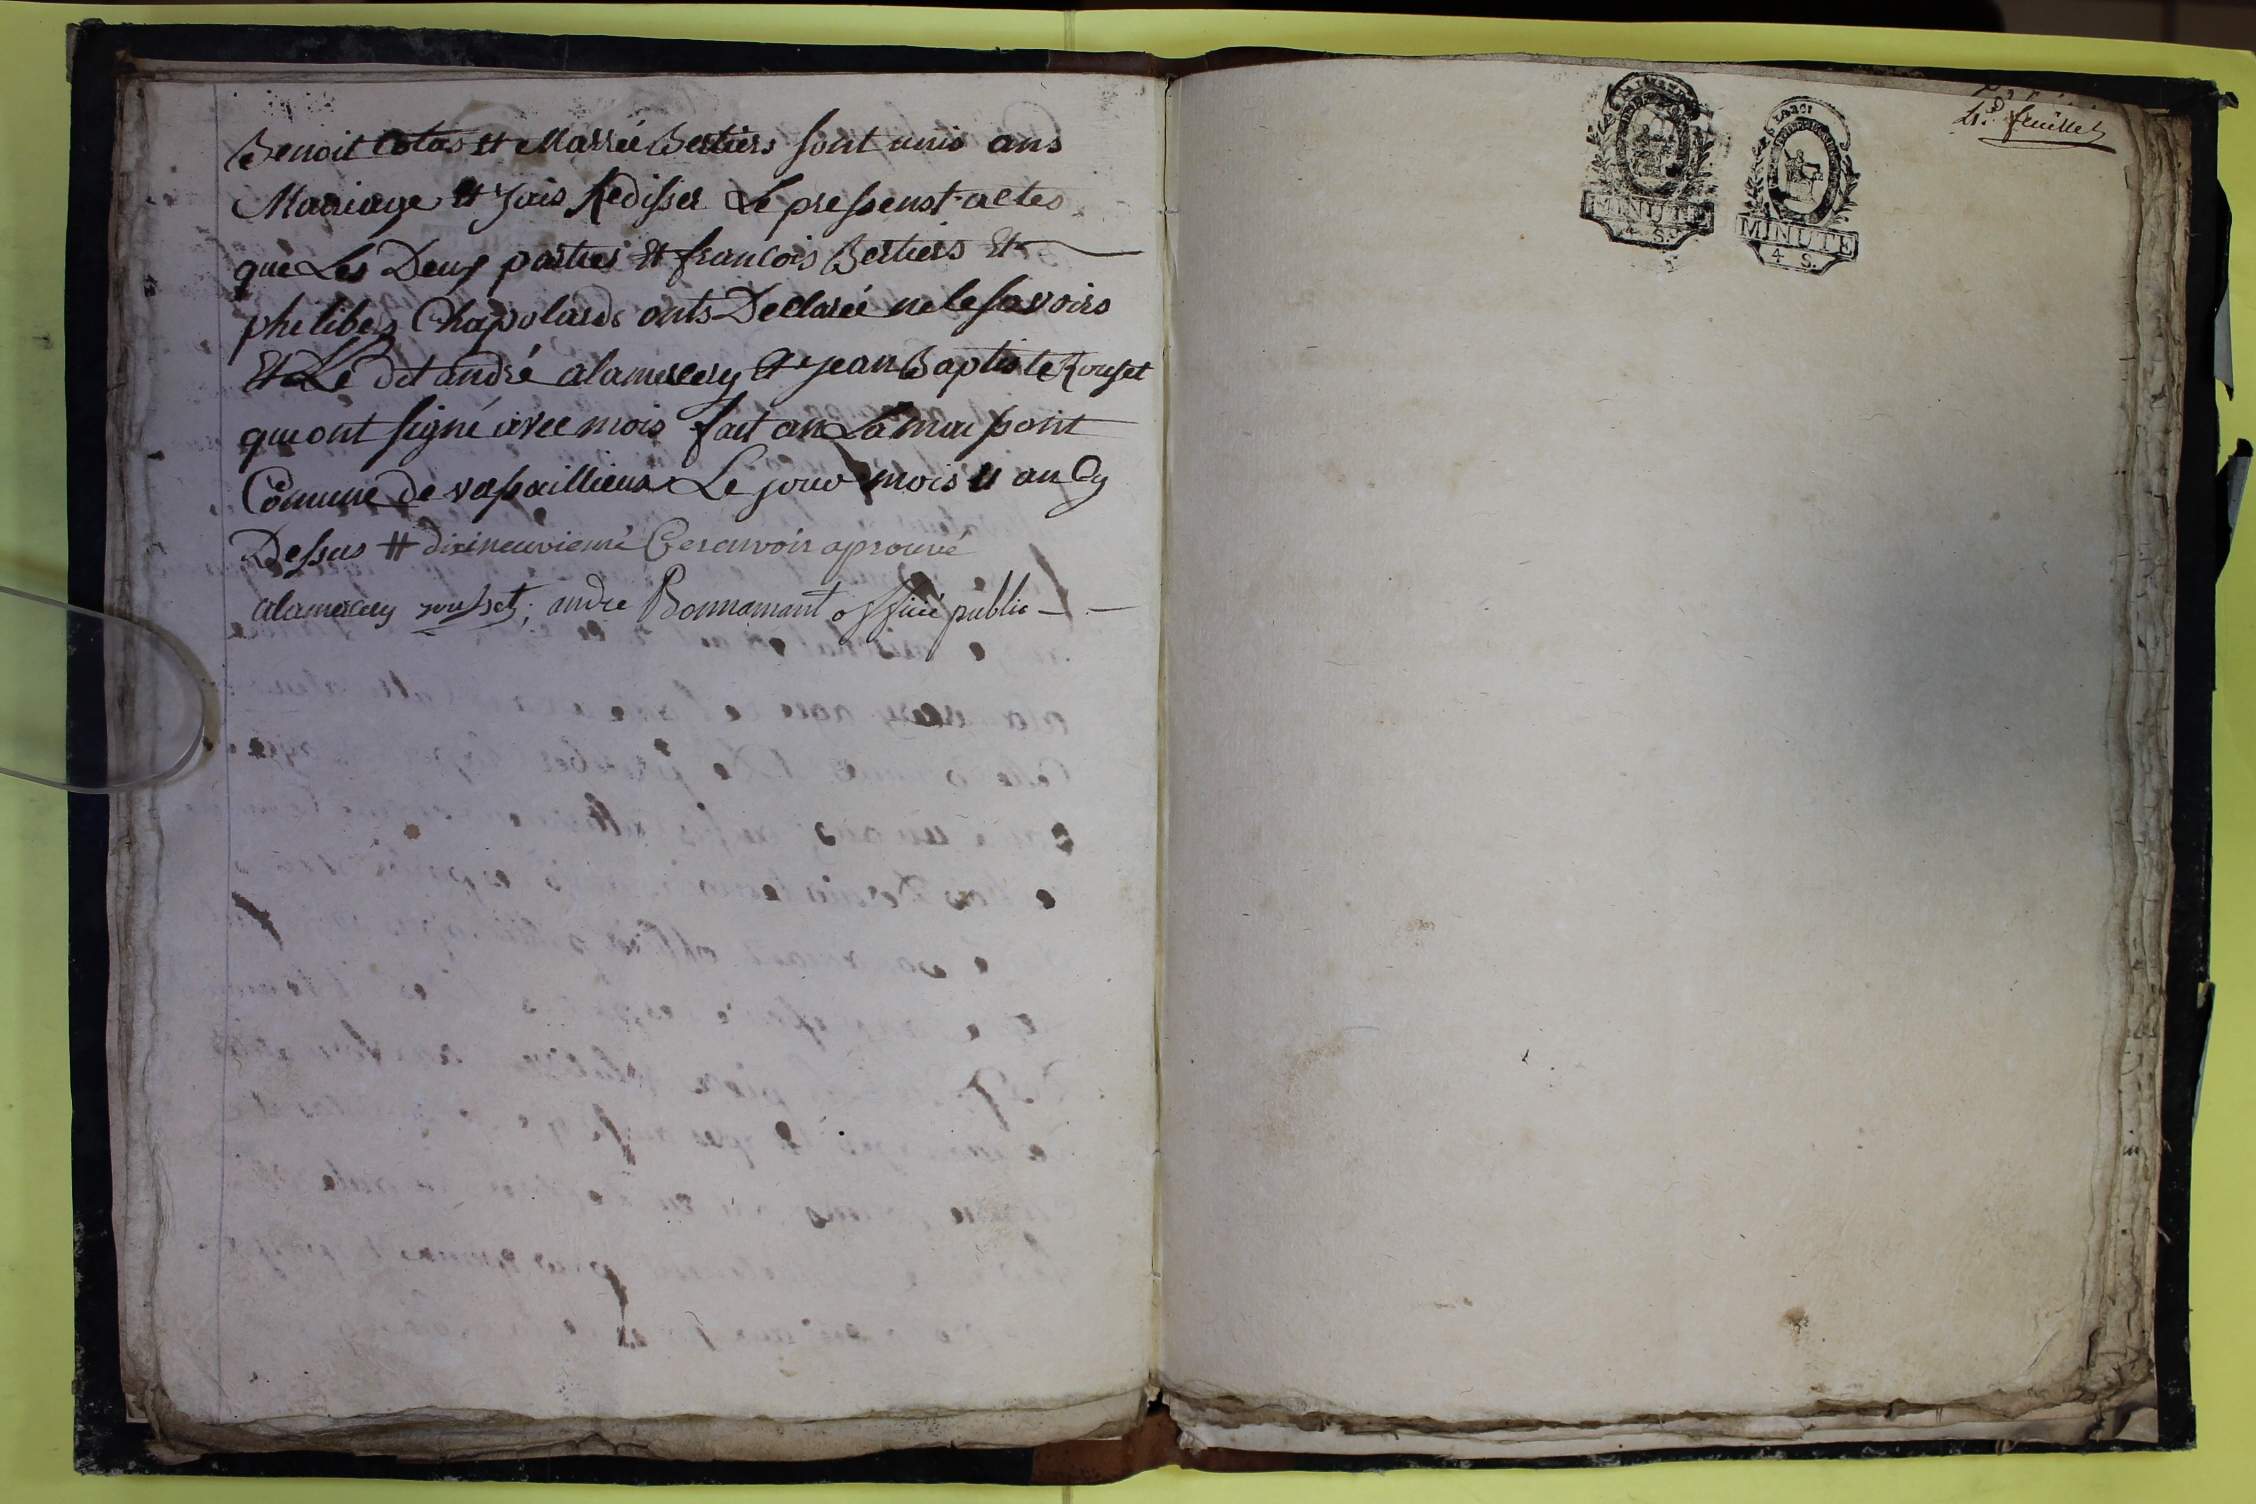 Benoit Cotas et Marrée Bertiers sont unis ans
Mariage et Jais Redisser Le pressenst actes
que Les Deux parties et francois Bertiers Et
philibes Chapolards onts Declarée ne le savoirs
Et Le dit andré alamercery et jean Baptiste Rouset
qui ont signé avec mois fait an La
Comune de Le jour mois et an Cy
Dessus # dixineuvieme aprouvé
alamercery rousset, andre Bonnamant officié public
feuillet
MINUTE
4 S.
MINUTE
4 S.